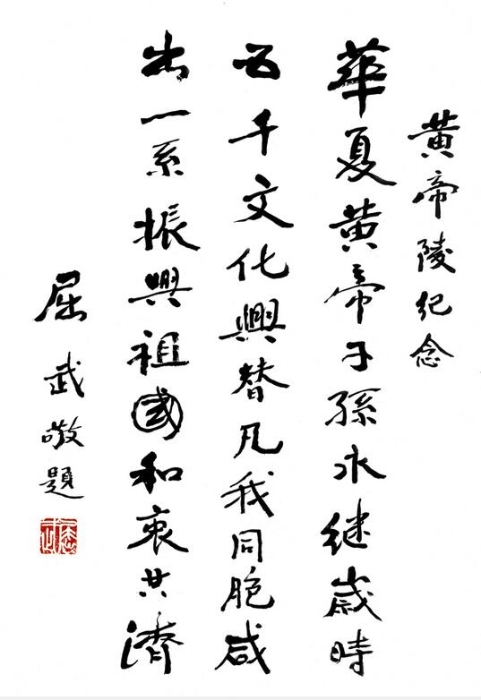 黄帝陵纪念
華夏黄帝子孫永继歲時
五千文化興替凡我同胞咸
出一系振興祖國和衷共濟
屈武敬題